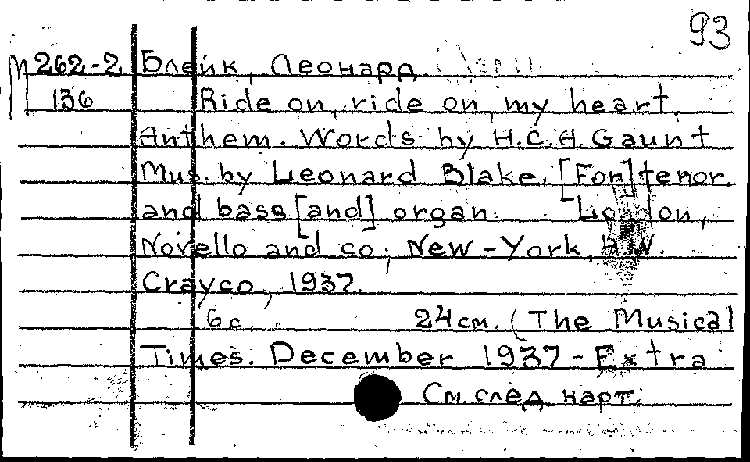 93
М 262-2 Блейк, Леонард.
136 Ride on, ride on, my heart.
Anthem. Words by H.C.A. Gaunt
Mus. by Leonard Blake. [For] tenor
and bass [and] organ. London,
Novello and co; New-York, H.W.
Crayco, 1937.
6 с. 24 см. (The Musical
Times. December 1937 - Extra
См. след карт.